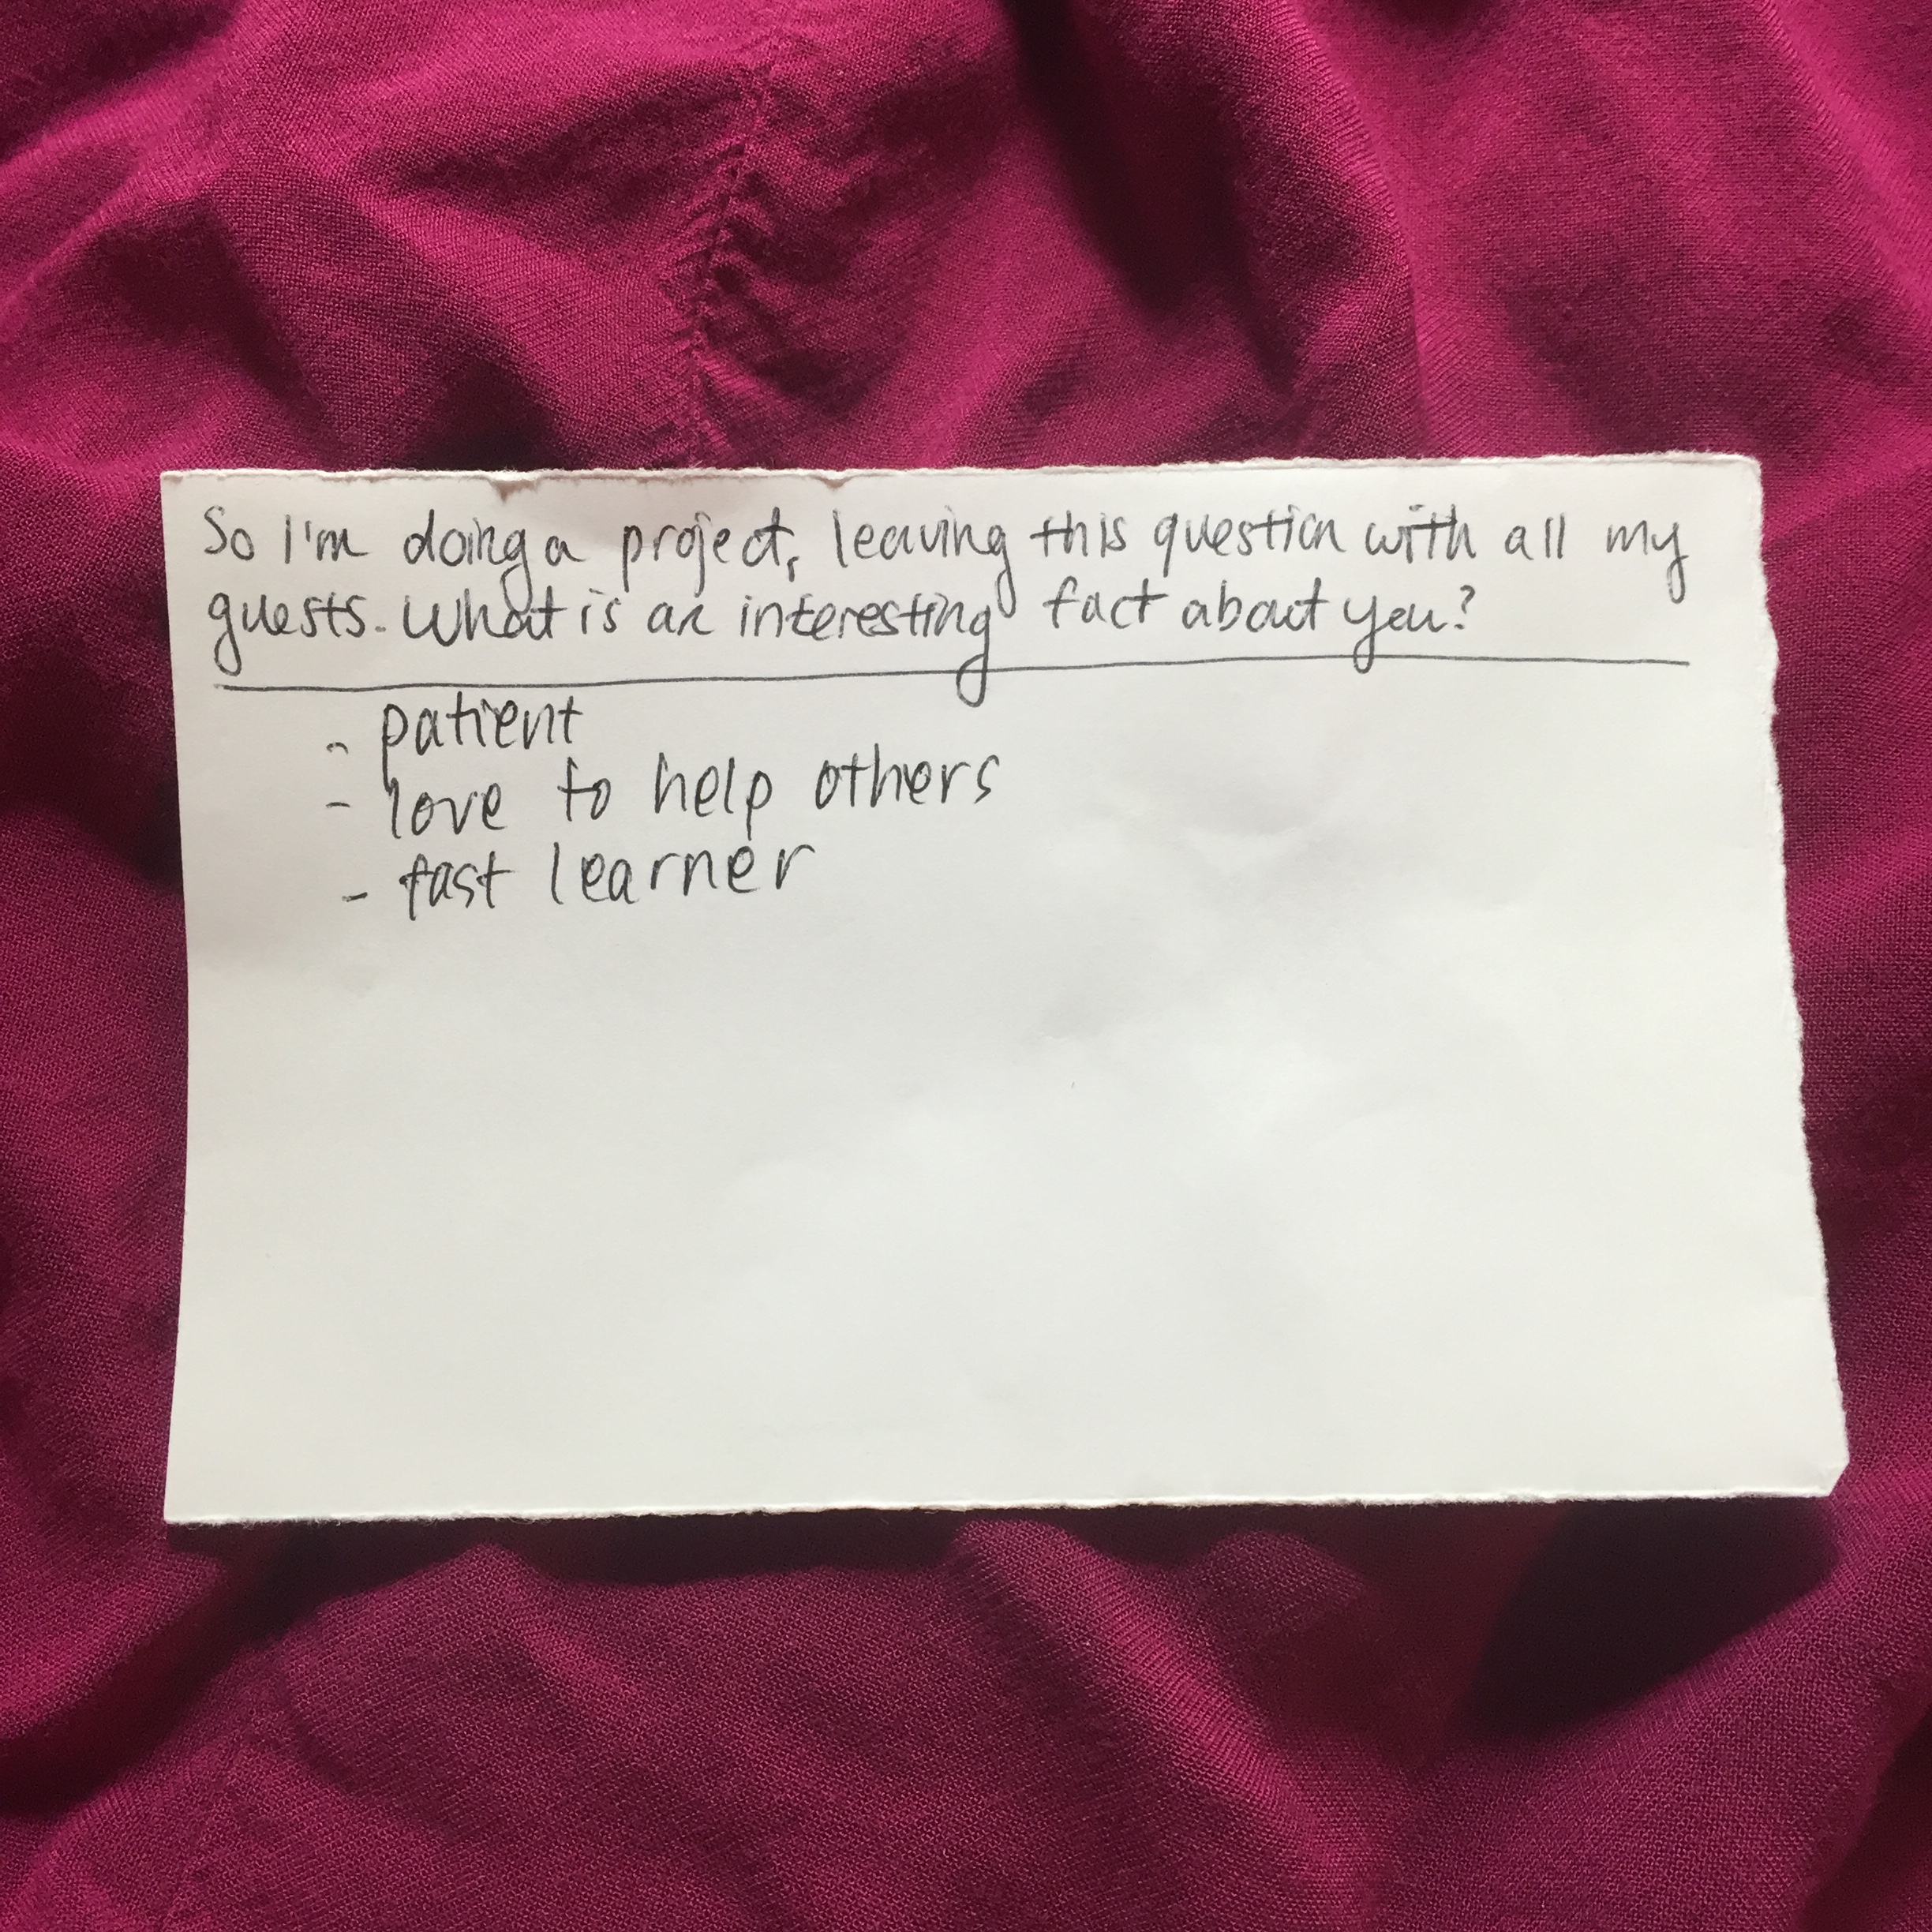 So I'm doing a project, leaving this question with all my
guests. What is an interesting fact about you?
- patient
- love to help others
- fast learner